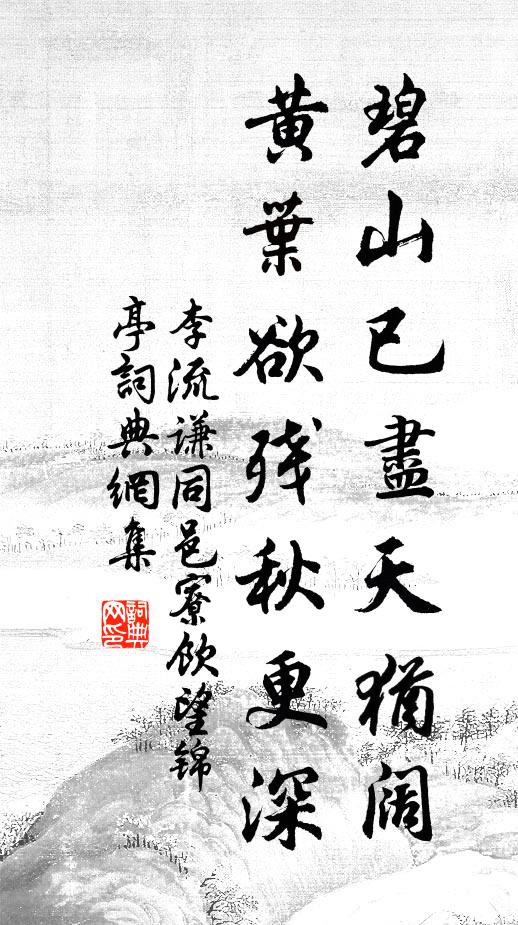 碧山已盡天猶阔
黃葉欲残秋更深
李流谦同邑寮飲望锦
亭詞典網集
詞典网印